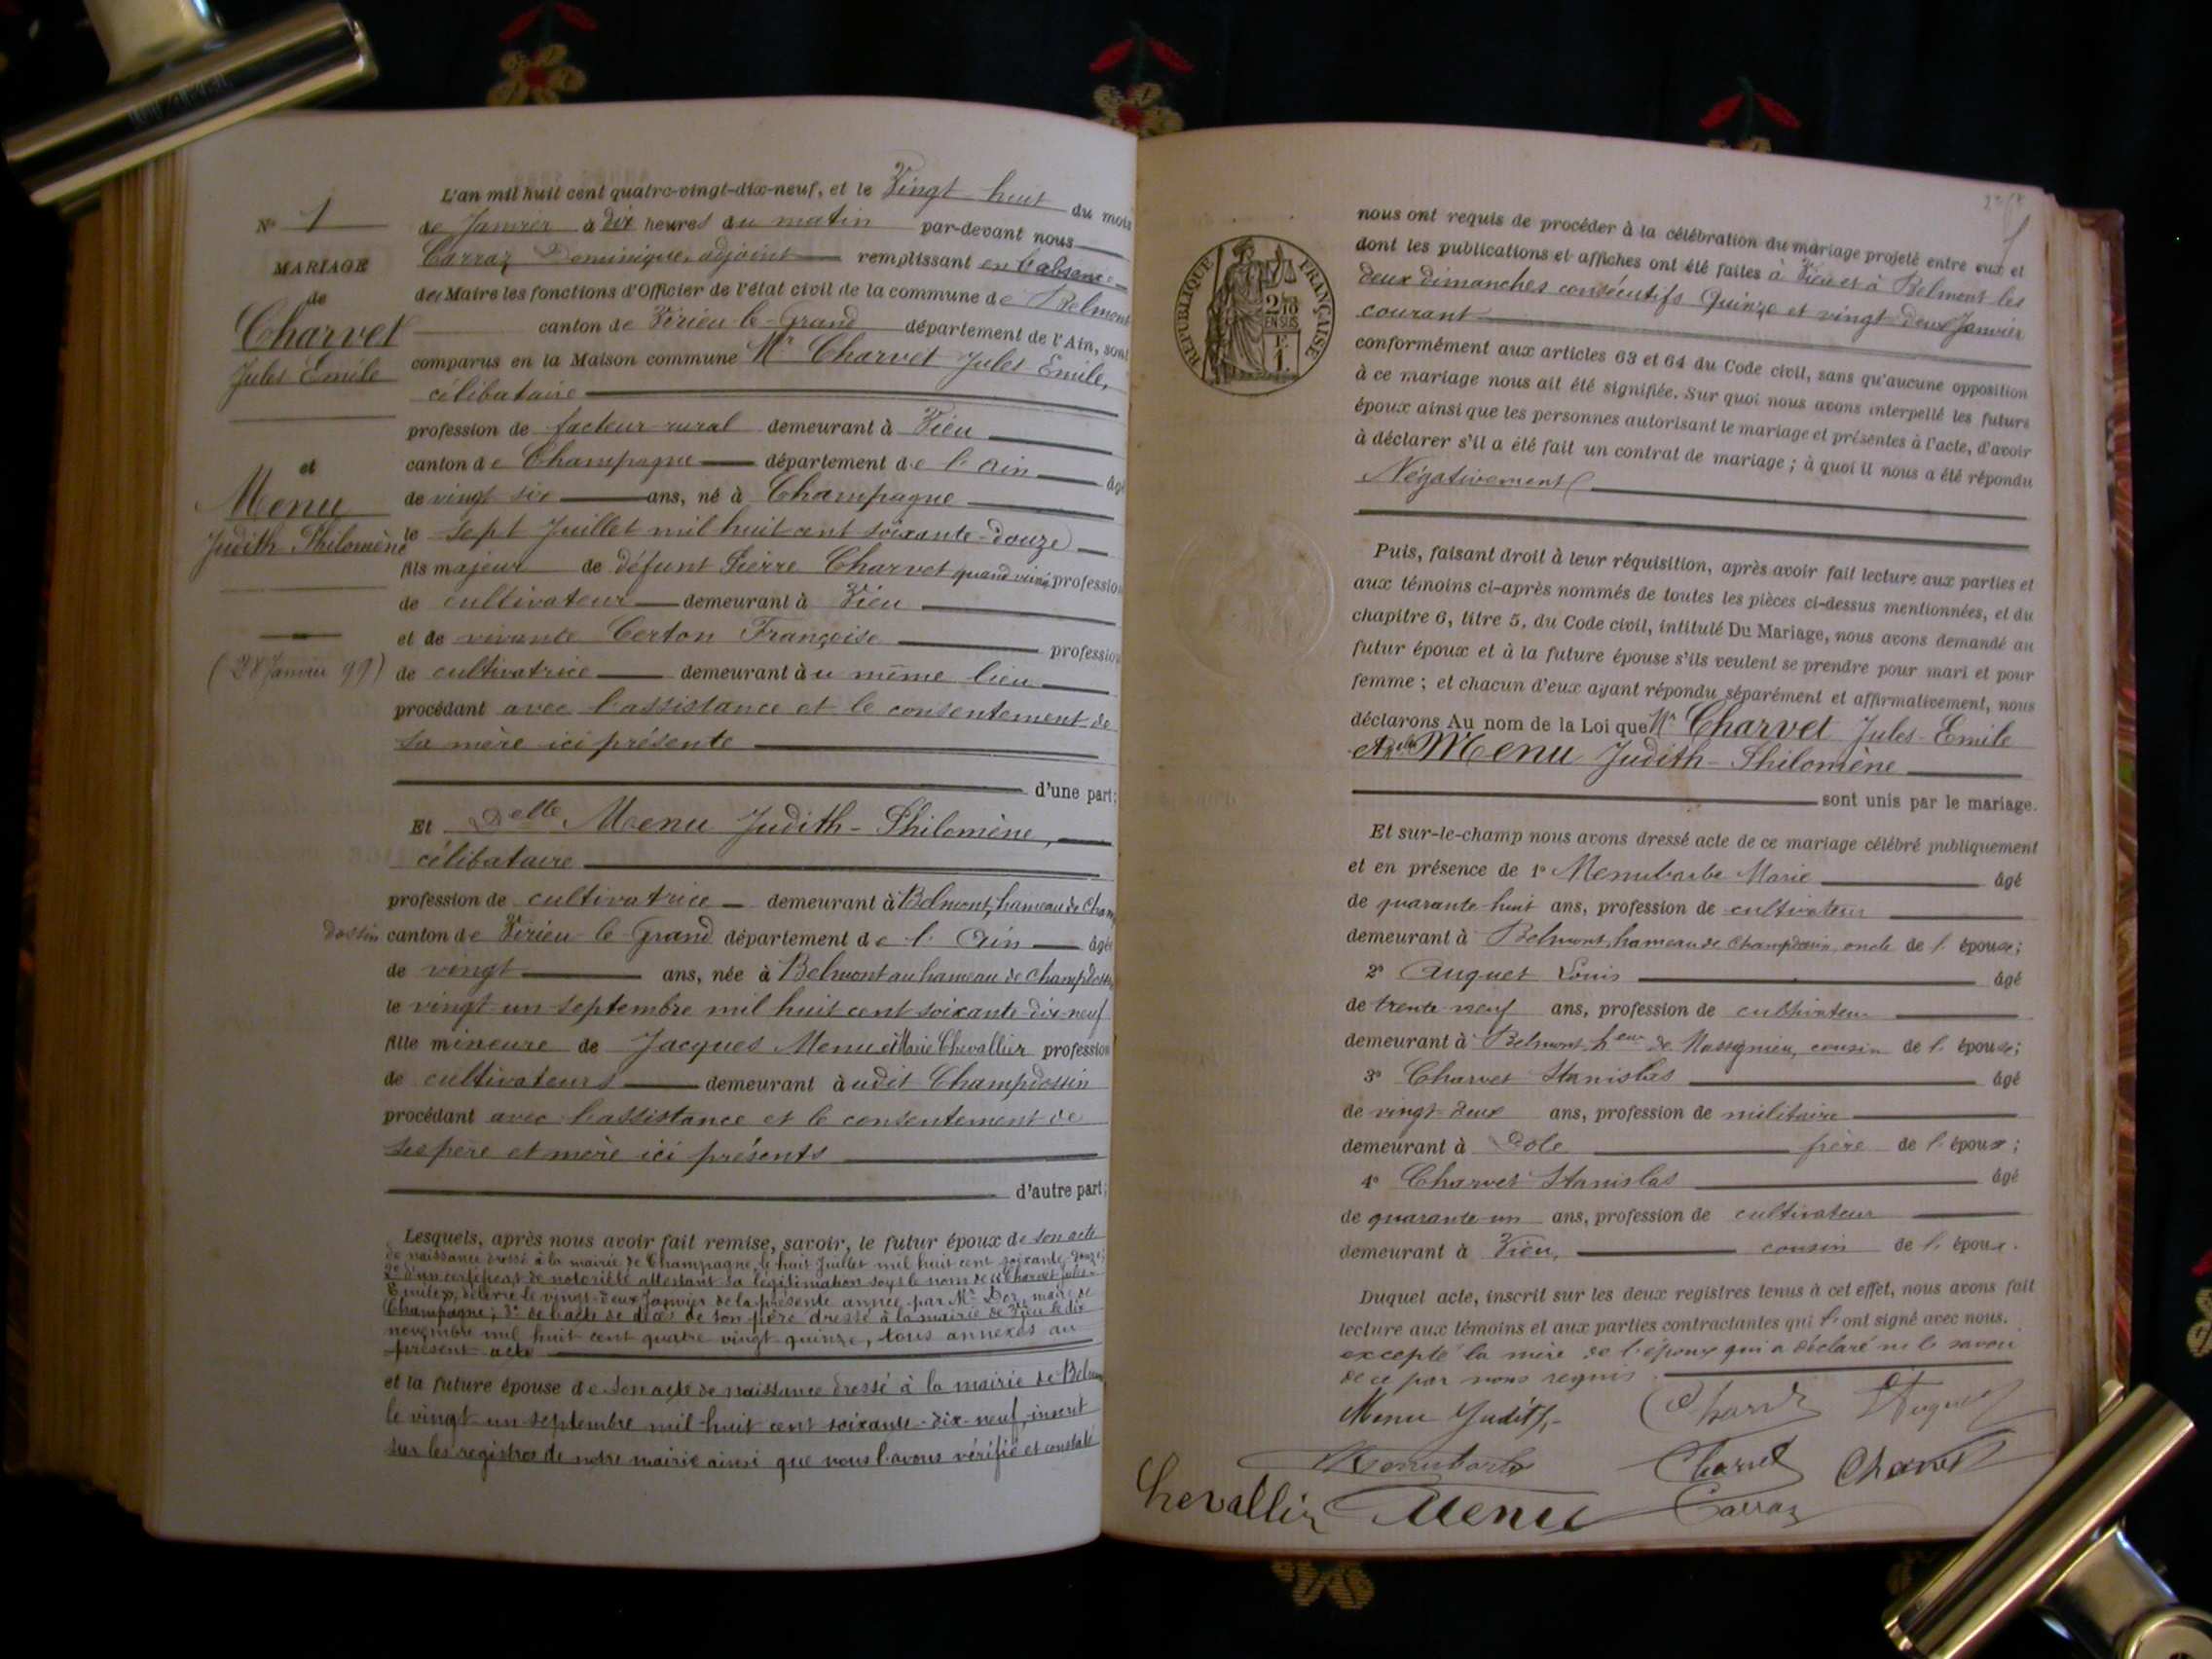 L'an mil huit cent quatre-vingt-dix-neuf, et le Vingt huit du mois
N° 1
de Janvier à dix heures du matin par-devant nous
MARIAGE
Carraz Dominique, adjoint remplissant en l'absence
de
du Maire les fonctions d'Officier de l'état civil de la commune de Belmont
Charvet
canton de Virieu-le-Grand département de l'Ain, sont
Jules Emile
comparus en la Maison commune Mr Charvet Jules Emile,
célibataire
profession de facteur rural demeurant à Vieu
et
canton de Champagne département de l'Ain âgé
Menu
de vingt six ans, né à Champagne
Judith Philomène
le sept Juillet mil huit cent soixante-douze
fils majeur de défunt Pierre Charvet quand vivait profession
de cultivateur demeurant à Vieu
et de vivante Berton Françoise profession
(28 Janvier 99)
de cultivatrice demeurant au même lieu
procédant avec l'assistance et le consentement de
sa mère ici présente
d'une part;
Et Delle Menu Judith-Philomène,
célibataire
profession de cultivatrice demeurant à Belmont, hameau de Champ
dossin canton de Virieu-le-Grand département de l'Ain âgée
de vingt ans, née à Belmont au hameau de Champdossin
le vingt un septembre mil huit cent soixante-dix-neuf
fille mineure de Jacques Menu et Marie Chevallier profession
de cultivateurs demeurant audit Champdossin
procédant avec l'assistance et le consentement de
ses père et mère ici présents
d'autre part;
Lesquels, après nous avoir fait remise, savoir, le futur époux de son acte
de naissance dressé à la mairie de Champagne, le huit Juillet mil huit cent soixante-douze;
2° d'un certificat de notoriété attestant sa légitimation sous le nom de « Charvet Jules-
Emile », délivré le vingt-deux Janvier de la présente année par Mr Dor, maire de
Champagne; 3° de l'acte de décès de son père dressé à la mairie de Vieu le dix
novembre mil huit cent quatre vingt quinze, tous annexés au
présent acte
et la future épouse de son acte de naissance dressé à la mairie de Belmont
le vingt-un septembre mil-huit cent soixante-dix-neuf, inscrit
sur les registres de notre mairie ainsi que nous l'avons vérifié et constaté
nous ont requis de procéder à la célébration du mariage projeté entre eux et
dont les publications et affiches ont été faites à Vieu et à Belmont les
deux dimanches consécutifs Quinze et vingt-deux Janvier
courant
RÉPUBLIQUE FRANÇAISE
2/10
EN SUS
F.
1.
conformément aux articles 63 et 64 du Code civil, sans qu'aucune opposition
à ce mariage nous ait été signifiée. Sur quoi nous avons interpellé les futurs
époux ainsi que les personnes autorisant le mariage et présentes à l'acte, d'avoir
à déclarer s'il a été fait un contrat de mariage ; à quoi il nous a été répondu
Négativement
Puis, faisant droit à leur réquisition, après avoir fait lecture aux parties et
aux témoins ci-après nommés de toutes les pièces ci-dessus mentionnées, et du
chapitre 6, titre 5, du Code civil, intitulé Du Mariage, nous avons demandé au
futur époux et à la future épouse s'ils veulent se prendre pour mari et pour
femme ; et chacun d'eux ayant répondu séparément et affirmativement, nous
déclarons Au nom de la Loi que Mr Charvet Jules-Emile
et Delle Menu Judith-Philomène
sont unis par le mariage.
Et sur-le-champ nous avons dressé acte de ce mariage célébré publiquement
et en présence de 1° Menubarbe Marie âgé
de quarante-huit ans, profession de cultivateur
demeurant à Belmont, hameau de Champdossin, oncle de l'épouse;
2° Auguet Louis âgé
de trente-neuf ans, profession de cultivateur
demeurant à Belmont, heau de Massignieu, cousin de l'épouse;
3° Charvet Stanislas âgé
de vingt-deux ans, profession de militaire
demeurant à Dole frère de l'époux ;
4° Charvet Stanislas âgé
de quarante-un ans, profession de cultivateur
demeurant à Vieu, cousin de l'époux.
Duquel acte, inscrit sur les deux registres tenus à cet effet, nous avons fait
lecture aux témoins et aux parties contractantes qui l'ont signé avec nous.
excepté la mère de l'époux qui a déclaré ne le savoir
de ce par nous requis.
Menu Judith Charvet Auguet
Menubarbe Charvet Charvet
Chevallier Menu Carraz